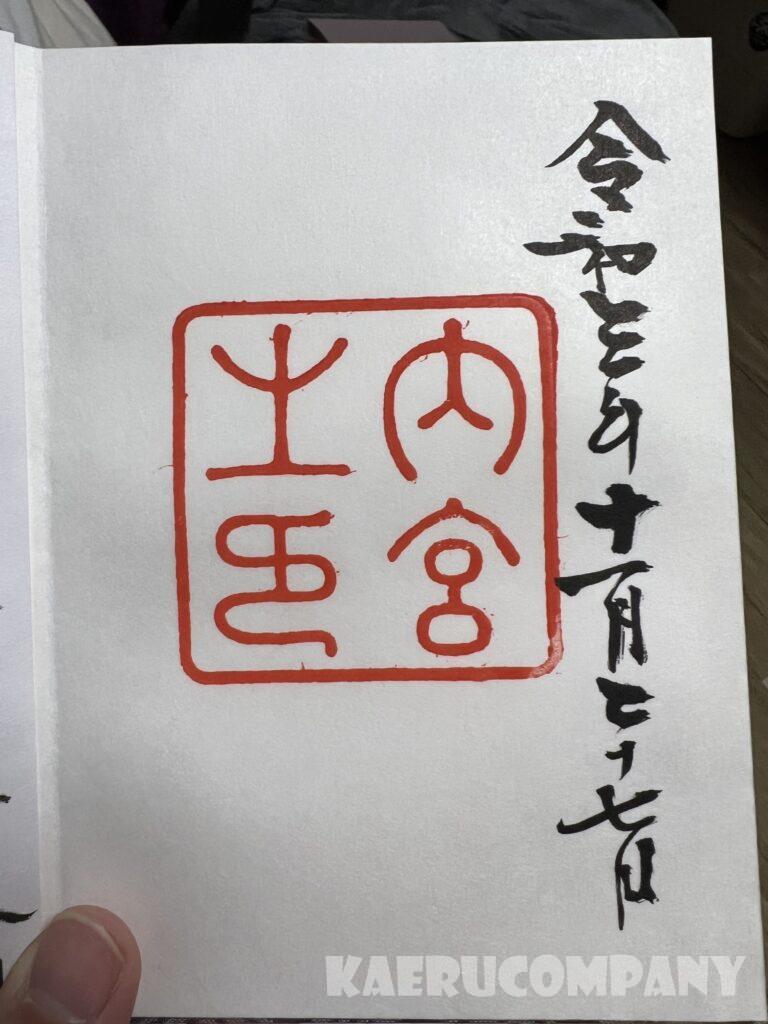 令和三年十一月二十七日
内宮
之印
KAERUCOMPANY